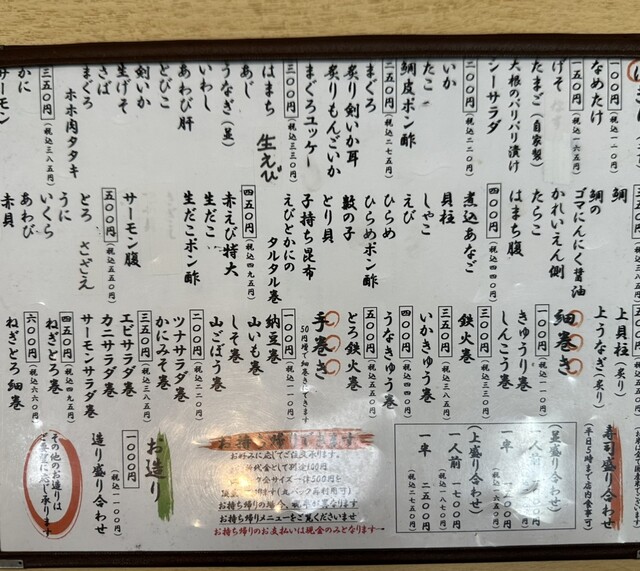 一〇〇円(税込一一〇円)
なめたけ
一五〇円(税込一六五円)
げそ
たまご(自家製)
大根のパリパリ漬け
シーサラダ
二〇〇円(税込二二〇円)
いか
たこ
鯛皮ポン酢
二五〇円(税込二七五円)
まぐろ
炙り剣いか耳
炙りもんごいか
まぐろユッケ
三〇〇円(税込三三〇円)
はまち
生えび
あじ
うなぎ(並)
いわし
あわび肝
とびこ
剣いか
生げそ
さば
まぐろ
ホホ肉タタキ
三五〇円(税込三八五円)
かに
サーモン
鯛
鯛の
ゴマにんにく醤油
かれいえん側
たらこ
はまち腹
四〇〇円(税込四四〇円)
煮込あなご
貝柱
しゃこ
えび
ひらめ
ひらめポン酢
数の子
とり貝
子持ち昆布
えびとかにの
タルタル巻
四五〇円(税込四九五円)
赤えび特大
生だこ
生だこポン酢
サーモン腹
五五〇円(税込五五〇円)
とろ
さざえ
うに
いくら
あわび
赤貝
上貝柱(炙り)
上うなぎ(炙り)
細巻き
一〇〇円(税込一一〇円)
きゅうり巻
しんこう巻
三〇〇円(税込三三〇円)
鉄火巻
三五〇円(税込三八五円)
いかきゅう巻
四〇〇円(税込四四〇円)
うなきゅう巻
五〇〇円(税込五五〇円)
とろ鉄火巻
手巻き
50円増で細巻きできます
一〇〇円(税込一一〇円)
納豆巻
山いも巻
しそ巻
山ごぼう巻
二〇〇円(税込二二〇円)
ツナサラダ巻
かにみそ巻
三五〇円(税込三八五円)
エビサラダ巻
カニサラダ巻
サーモンサラダ巻
四五〇円(税込四九五円)
ねぎとろ巻
六〇〇円(税込六六〇円)
ねぎとろ細巻
寿司盛り合わせ
(平日5時まで店内食事可)
(並盛り合わせ)
一人前
一半
(上盛り合わせ)
一人前 一七〇〇円
(税込一八七〇円)
一半 二五〇〇円
(税込二七五〇円)
お持ち帰りできます
お好みに応じてご注文承ります。
お持ち帰りメニューをご覧くださいませ
お持ち帰りのお支払いは現金のみとなります
お造り
一〇〇〇円
(税込一一〇〇円)
造り盛り合わせ
その他のお造りは
ご予算に応じ承ります